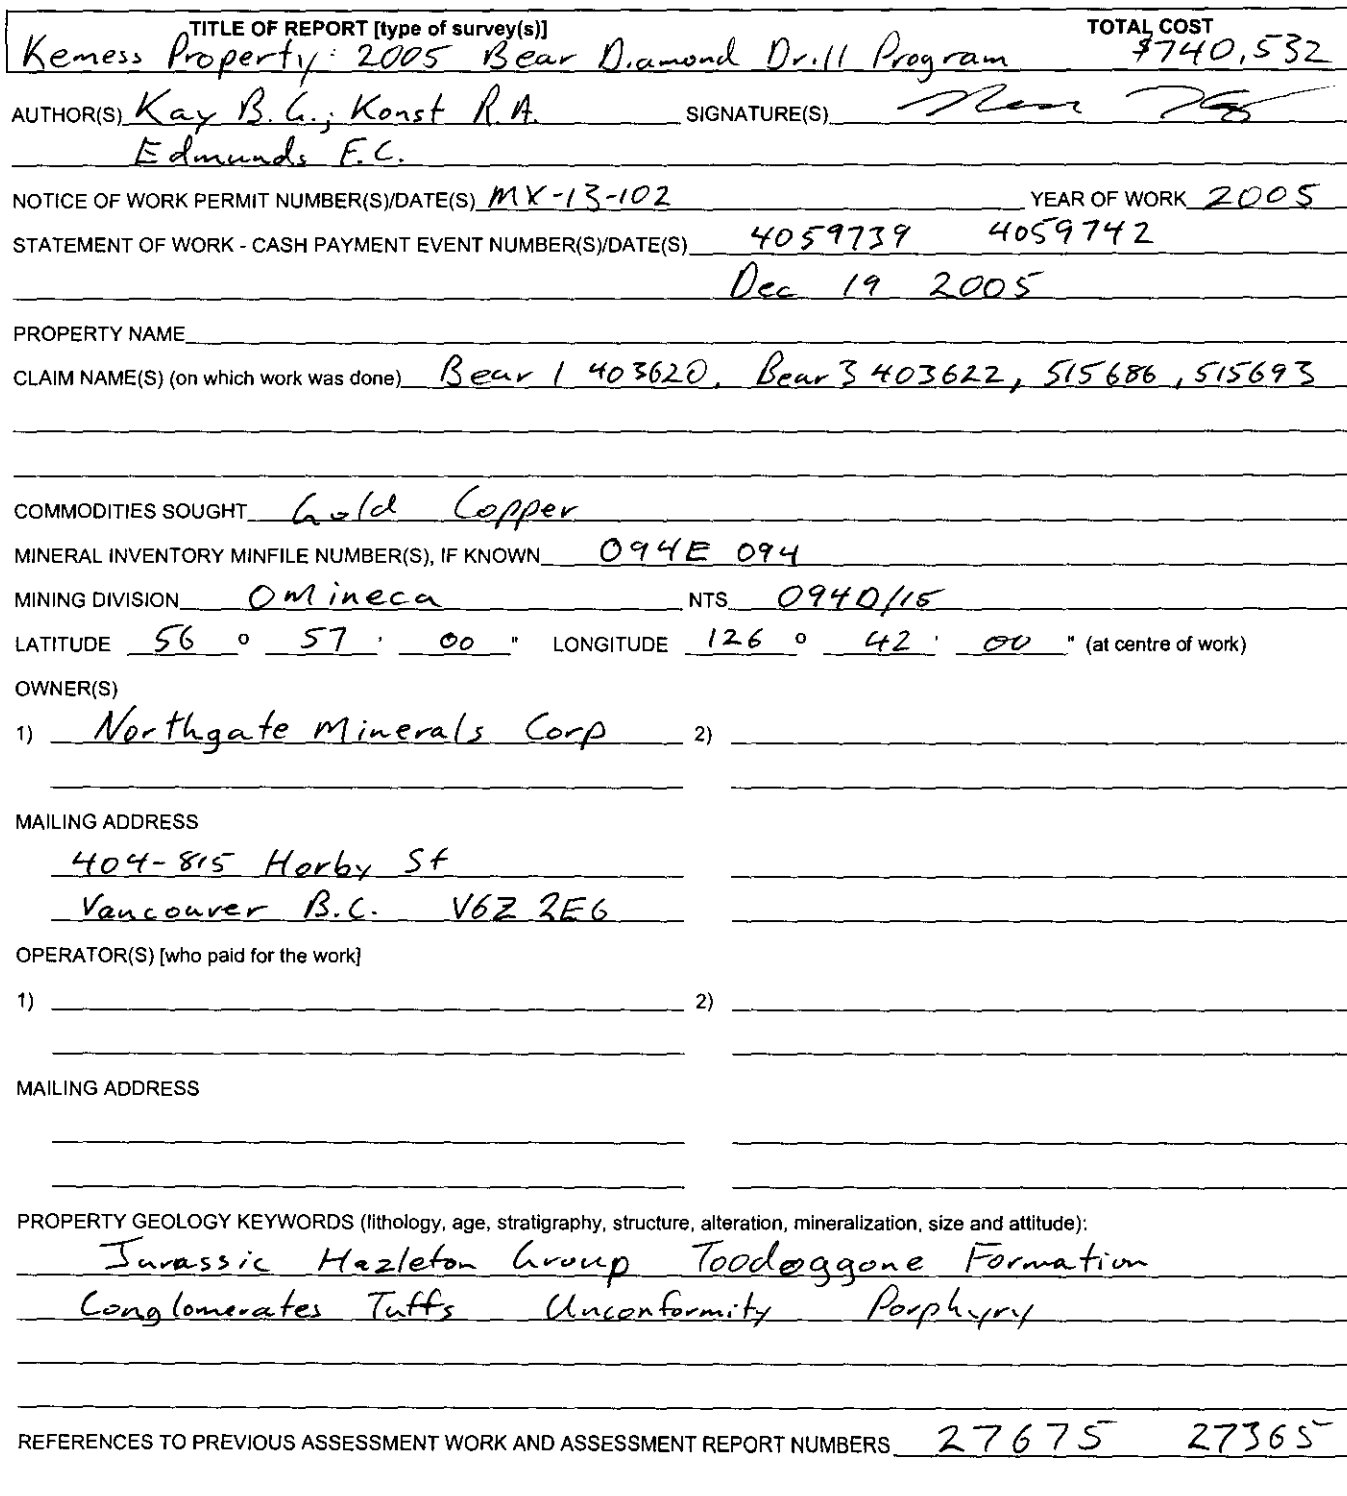 TITLE OF REPORT [type of survey(s)] TOTAL COST
Kemess Property: 2005 Bear Diamond Drill Program $740,532
AUTHOR(S) Kay B.G.; Konst R.A. SIGNATURE(S)
Edmunds F.C.
NOTICE OF WORK PERMIT NUMBER(S)/DATE(S) MX-13-102 YEAR OF WORK 2005
STATEMENT OF WORK - CASH PAYMENT EVENT NUMBER(S)/DATE(S) 4059739 4059742
Dec 19 2005
PROPERTY NAME
CLAIM NAME(S) (on which work was done) Bear 1 403620, Bear 3 403622, 515686, 515693
COMMODITIES SOUGHT Gold Copper
MINERAL INVENTORY MINFILE NUMBER(S), IF KNOWN 094E 094
MINING DIVISION Omineca NTS 094D/15
LATITUDE 56 o 57 ' 00 " LONGITUDE 126 o 42 ' 00 " (at centre of work)
OWNER(S)
1) Northgate Minerals Corp 2)
MAILING ADDRESS
404-815 Horby St
Vancouver B.C. V6Z 2E6
OPERATOR(S) [who paid for the work]
1) 2)
MAILING ADDRESS
PROPERTY GEOLOGY KEYWORDS (lithology, age, stratigraphy, structure, alteration, mineralization, size and attitude):
Jurassic Hazleton Group Toodoggone Formation
Conglomerates Tuffs Unconformity Porphyry
REFERENCES TO PREVIOUS ASSESSMENT WORK AND ASSESSMENT REPORT NUMBERS 27675 27365